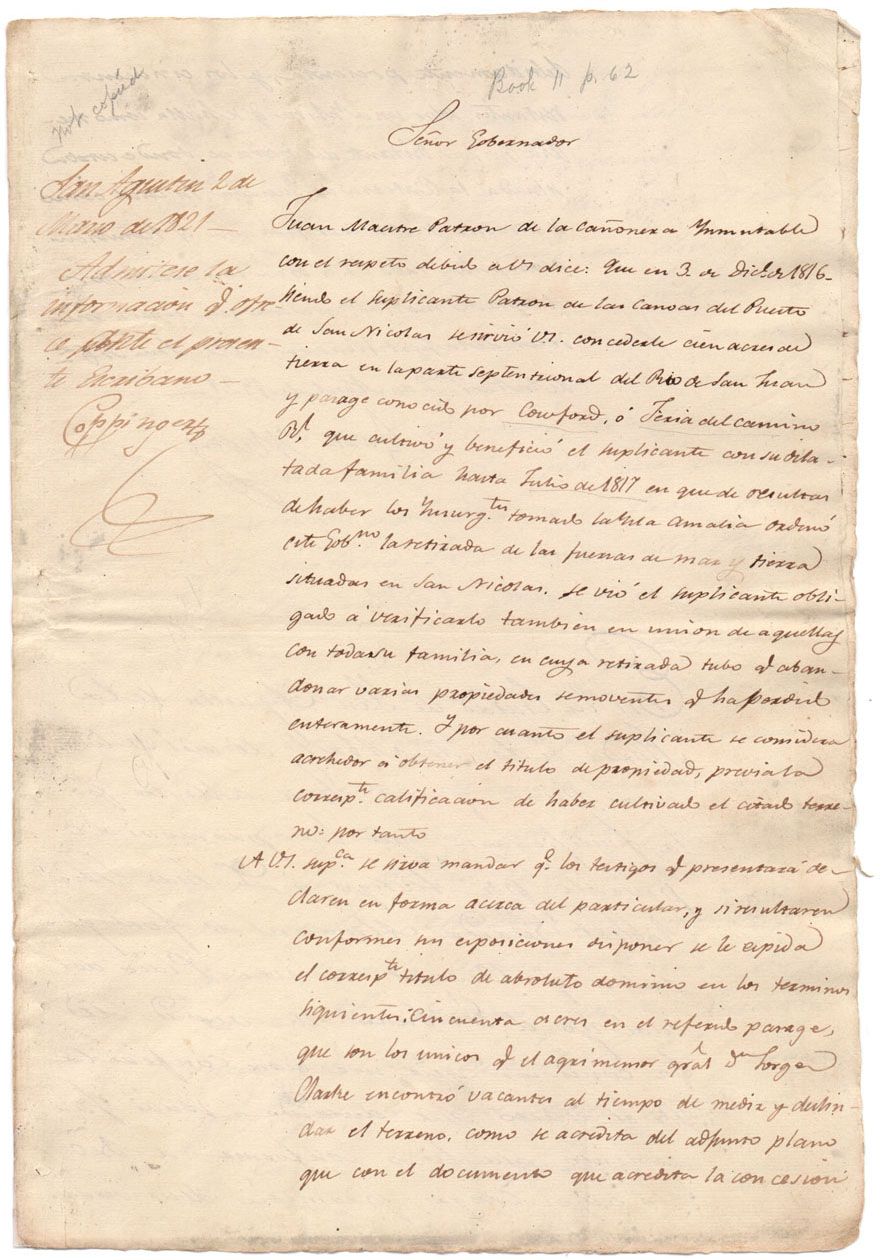 Book 11 p. 62
not copied
Señor Gobernador
San Agustin 2 de
Marzo de 1821 —
Admitese la
informacion q. ofre-
ce ante el presen-
te Escribano —
Coppinger
Juan Maestre Patron de la Cañonera Ynmutable
con el respeto debido a VS. dice: Que en 3. de Dicbre 1816-
siendo el suplicante Patron de las canoas del Puerto
de San Nicolas se sirvió VS. concederle cien acres de
tierra en la parte septentrional del Rio de San Juan
y parage conocido por Cowford, ó Feria del camino
Rl. que cultivó y benefició el suplicante con su dila-
tada familia hasta Julio de 1817 en que de resultas
de haber los Ynsurgtes. tomado la Ysla Amalia ordenó
este Gobno. la retirada de las fuerzas de mar y tierra
situadas en San Nicolas. se vió el suplicante obli-
gado á verificarlo tambien en union de aquellas
con toda su familia, en cuya retirada tubo q. aban-
donar varias propiedades semoventes q. ha perdido
enteramente. Y por cuanto el suplicante se considera
acrehedor á obtener el titulo de propiedad, previa la
correspte. calificacion de haber cultivado el citado terre-
no: por tanto
A VS. supca. se sirva mandar q. los testigos q. presentará de-
claren en forma acerca del particular, y si resultaren
conformes sus esposiciones disponer se le espida
el correspte. titulo de absoluto dominio en los terminos
siguientes: Cincuenta acres en el referido parage,
que son los unicos q. el agrimensor gral. Dn. Jorge
Clarke encontró vacantes al tiempo de medir y deslin-
dar el terreno, como se acredita del adjunto plano
que con el documento que acredita la concesion